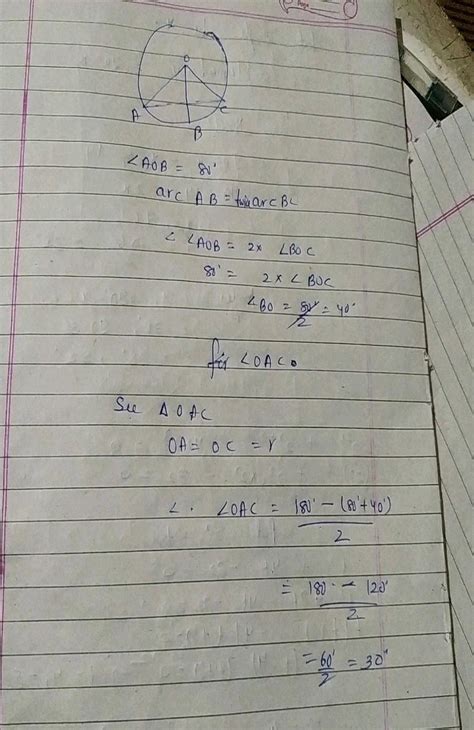 O
A
C
B
∠AOB = 80°
arc AB = twice arc BC
∠ ∠AOB = 2× ∠BOC
80° = 2 × ∠BOC
∠BO = 80°/2 = 40°
for ∠OAC
See △OAC
OA = OC = r
∠. ∠OAC = 180° - (80°+40°)/2
= 180° - 120°/2
= 60°/2 = 30°